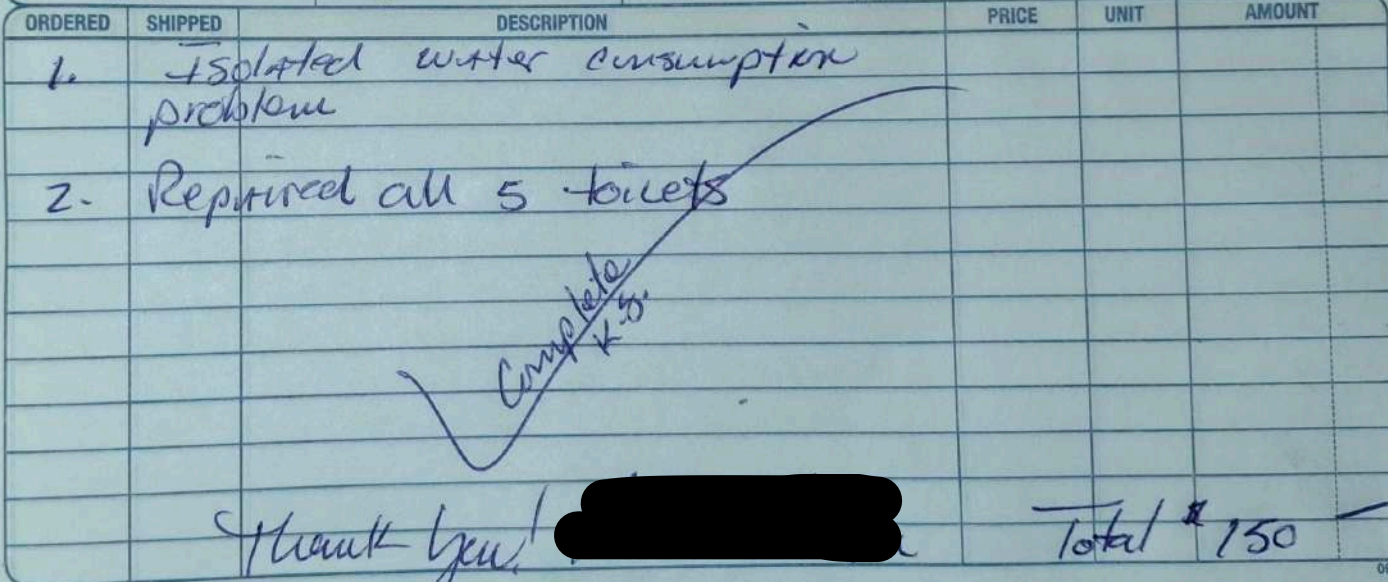 ORDERED SHIPPED DESCRIPTION PRICE UNIT AMOUNT
1. Isolated water consumption
problem
2. Repaired all 5 toilets
Complete
K.S.
Thank you! Total $ 150